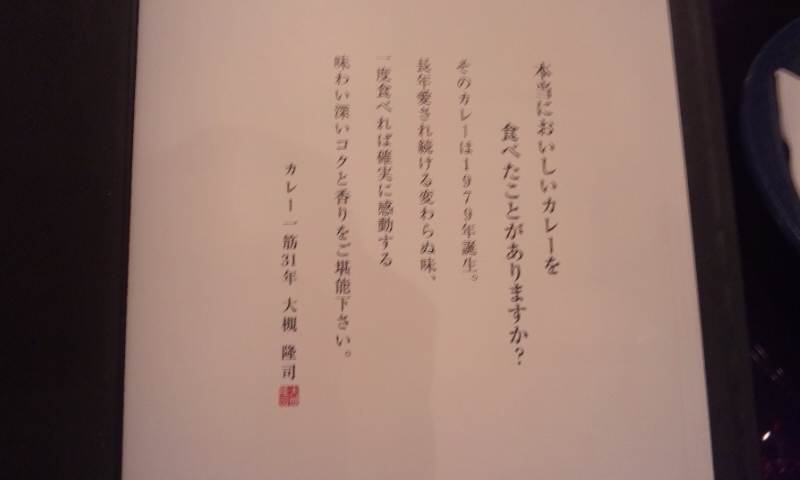 本当においしいカレーを
食べたことがありますか？
そのカレーは1979年誕生。
長年愛され続ける変わらぬ味、
一度食べれば確実に感動する
味わい深いコクと香りをご堪能下さい。
カレー一筋31年 大槻 隆司